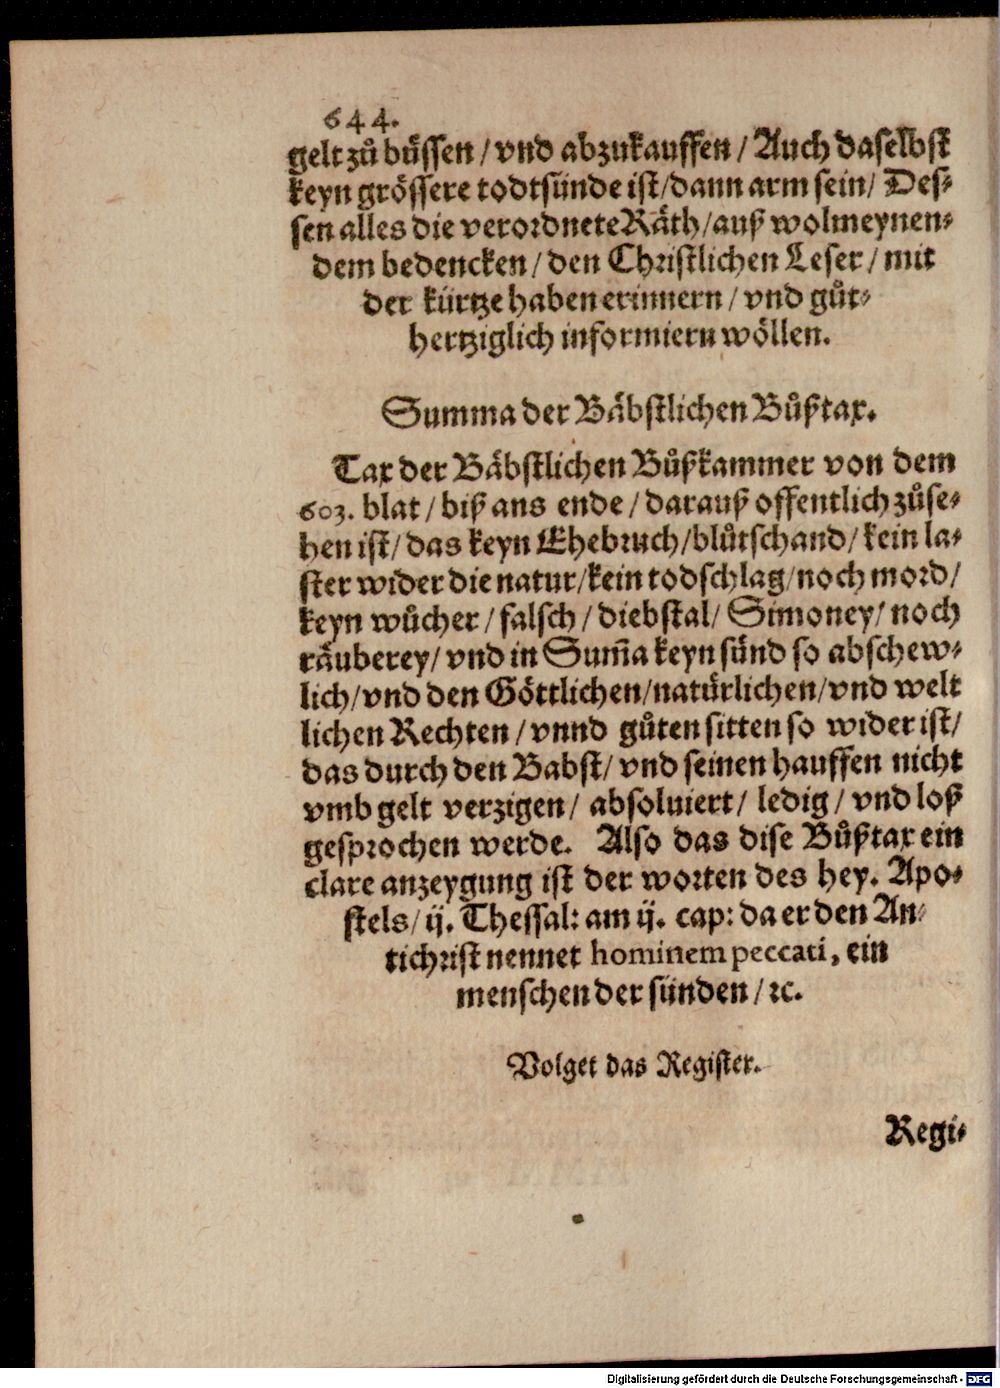 644.
gelt zů bůſſen / vnd abzukauffen / Auch daſelbſt
keyn gröſſere todtſünde iſt / dann arm ſein / Deſ⸗
ſen alles die verordnete Räth / auß wolmeynen⸗
dem bedencken / den Chriſtlichen Leſer / mit
der kürtze haben erinnern / vnd gůt⸗
hertziglich informiern wöllen.
Summa der Bäbſtlichen Bůßtax.
Tax der Bäbſtlichen Bůßkammer von dem
603. blat / biß ans ende / darauß offentlich zůſe⸗
hen iſt / das keyn Ehebruch / blůtſchand / kein la⸗
ſter wider die natur / kein todſchlag / noch mord /
keyn wůcher / falſch / diebſtal / Simoney / noch
räuberey / vnd in Sum̃a keyn ſünd ſo abſchew⸗
lich / vnd den Göttlichen / natürlichen / vnd welt
lichen Rechten / vnnd gůten ſitten ſo wider iſt /
das durch den Babſt / vnd ſeinen hauffen nicht
vmb gelt verzigen / abſoluiert / ledig / vnd loß
geſprochen werde. Alſo das diſe Bůßtax ein
clare anzeygung iſt der worten des hey. Apo⸗
ſtels / ij. Theſſal: am ij. cap: da er den An⸗
tichriſt nennet hominem peccati, ein
menſchen der ſünden / ꝛc.
Volget das Regiſter.
Regi⸗
Digitalisierung gefördert durch die Deutsche Forschungsgemeinschaft - DFG